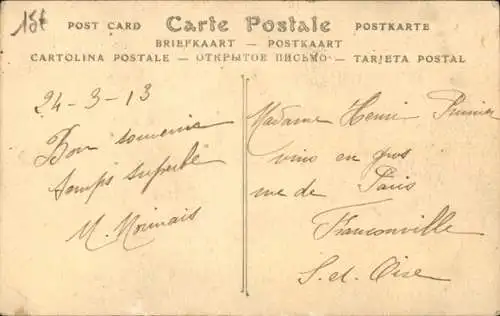 15f
POST CARD Carte Postale POSTKARTE
BRIEFKAART — POSTKAART
CARTOLINA POSTALE — ОТКРЫТОЕ ПИСЬМО — TARJETA POSTAL
24-3-13
Bon souvenir
temps superbe
Madame Henri Prunier
vins en gros
rue de Paris
Franconville
S. et. Oise